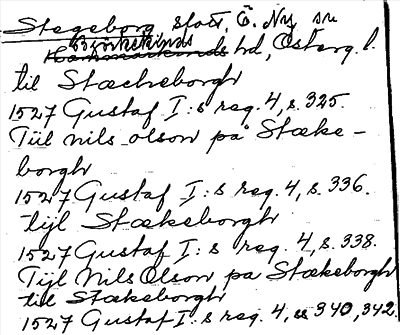 Stegeborg slott, Ö. Ny sn
Björkekinds
Hammarkinds hd, Österg. l.
til Stæcheborgh
1527 Gustaf I:s reg. 4, s. 325.
Tiil nils olson på Stæke-
borgh
1527 Gustaf I:s reg. 4, s. 336.
tijl Stækeborgh
1527 Gustaf I:s reg. 4, s. 338.
Tijl Nils Olson pa Stækeborgh
til Stækeborgh
1527 Gustaf I:s reg. 4, ss 340, 342.